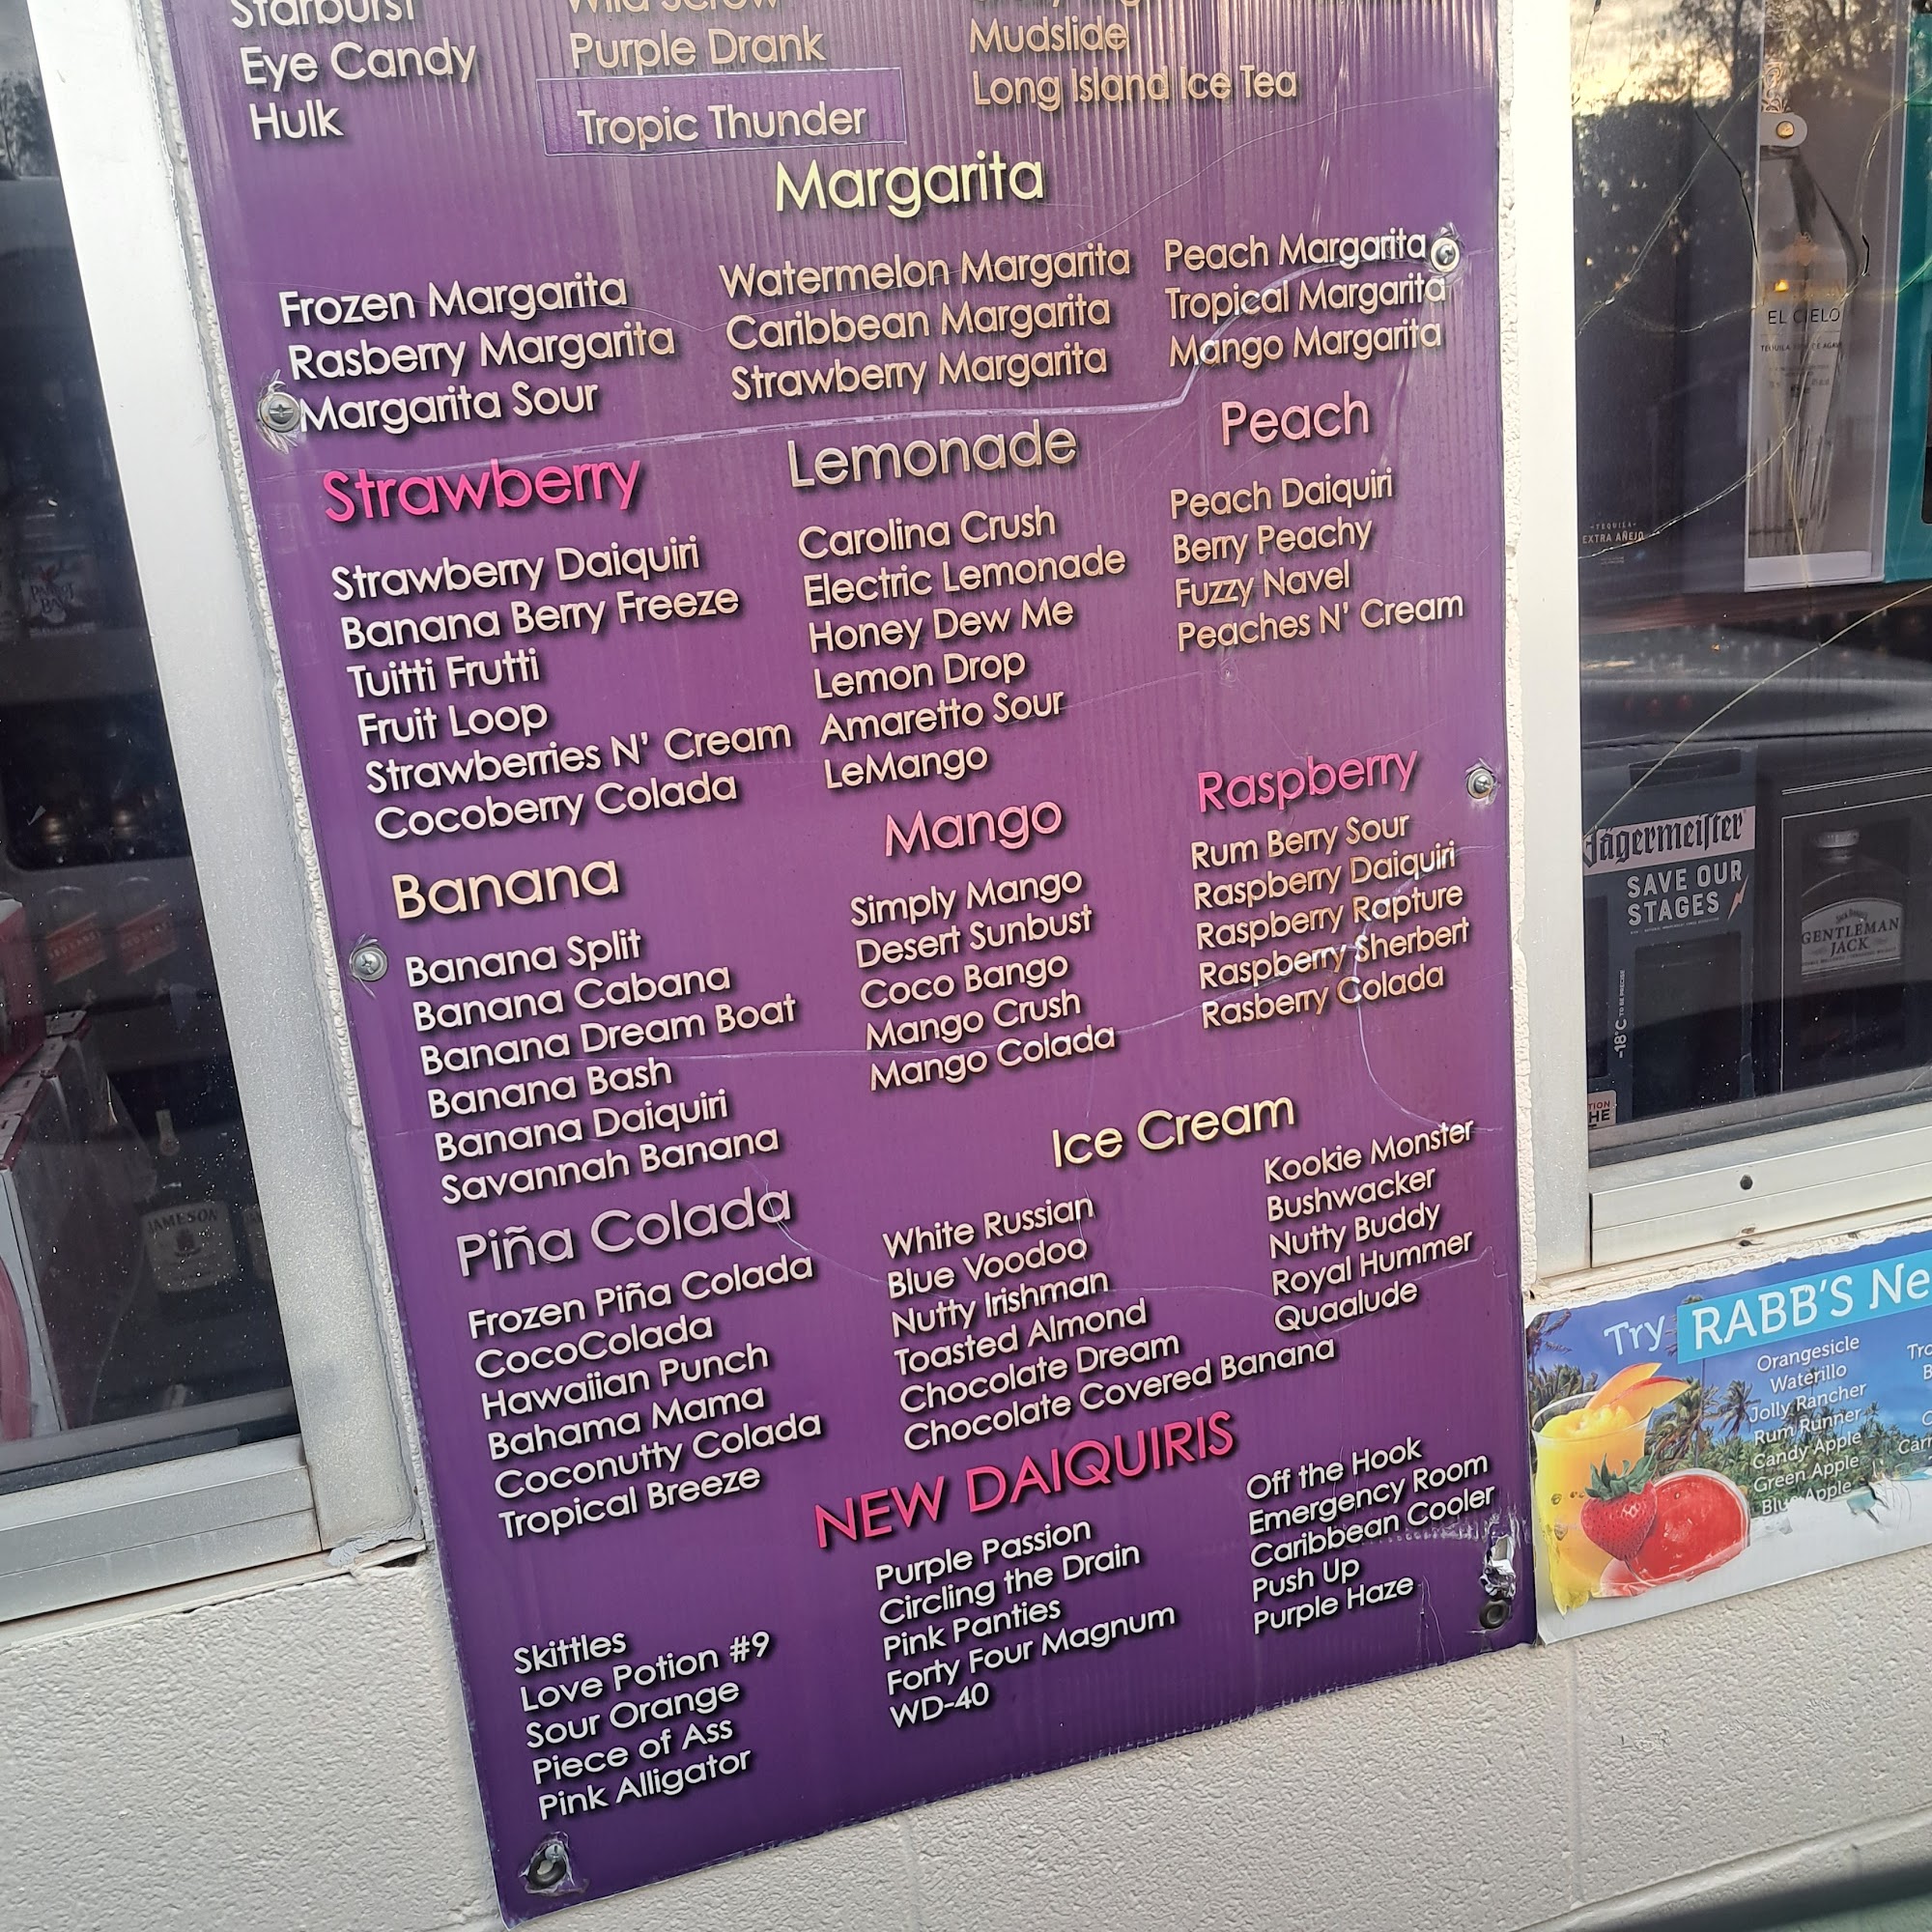 Starburst
Eye Candy
Hulk
Purple Drank
Tropic Thunder
Mudslide
Long Island Ice Tea
Margarita
Frozen Margarita
Rasberry Margarita
Margarita Sour
Watermelon Margarita
Caribbean Margarita
Strawberry Margarita
Peach Margarita
Tropical Margarita
Mango Margarita
Strawberry
Strawberry Daiquiri
Banana Berry Freeze
Tuitti Frutti
Fruit Loop
Strawberries N' Cream
Cocoberry Colada
Lemonade
Carolina Crush
Electric Lemonade
Honey Dew Me
Lemon Drop
Amaretto Sour
LeMango
Peach
Peach Daiquiri
Berry Peachy
Fuzzy Navel
Peaches N' Cream
Banana
Banana Split
Banana Cabana
Banana Dream Boat
Banana Bash
Banana Daiquiri
Savannah Banana
Mango
Simply Mango
Desert Sunbust
Coco Bango
Mango Crush
Mango Colada
Raspberry
Rum Berry Sour
Raspberry Daiquiri
Raspberry Rapture
Raspberry Sherbert
Rasberry Colada
Piña Colada
Frozen Piña Colada
CocoColada
Hawaiian Punch
Bahama Mama
Coconutty Colada
Tropical Breeze
Ice Cream
White Russian
Blue Voodoo
Nutty Irishman
Toasted Almond
Chocolate Dream
Chocolate Covered Banana
Kookie Monster
Bushwacker
Nutty Buddy
Royal Hummer
Quaalude
NEW DAIQUIRIS
Skittles
Love Potion #9
Sour Orange
Piece of Ass
Pink Alligator
Purple Passion
Circling the Drain
Pink Panties
Forty Four Magnum
WD-40
Off the Hook
Emergency Room
Caribbean Cooler
Push Up
Purple Haze
EL CIELO
TEQUILA
EXTRA AÑEJO
Jägermeister
SAVE OUR
STAGES
-18°C
GENTLEMAN
JACK
JAMESON
Try RABB'S Ne
Orangesicle
Waterillo
Jolly Rancher
Rum Runner
Candy Apple
Green Apple
Blue Apple